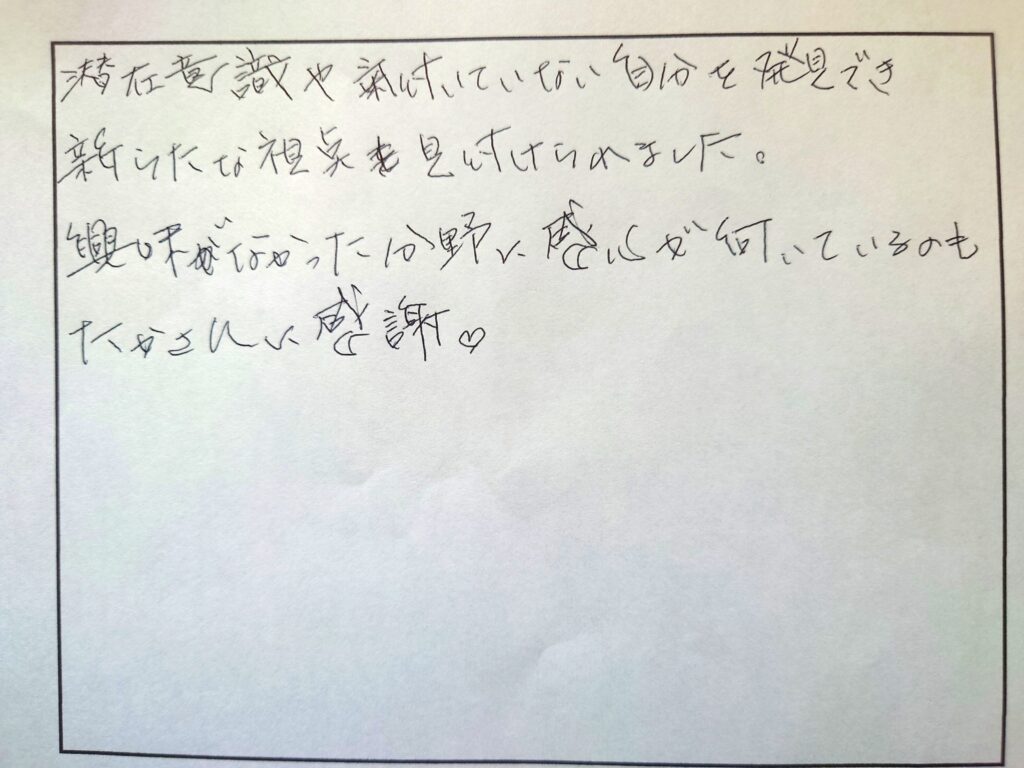 潜在意識や氣付いていない自分を発見でき
新らたな視点も見付けられました。
興味がなかった分野に感心が向いているのも
たかさんに感謝♡